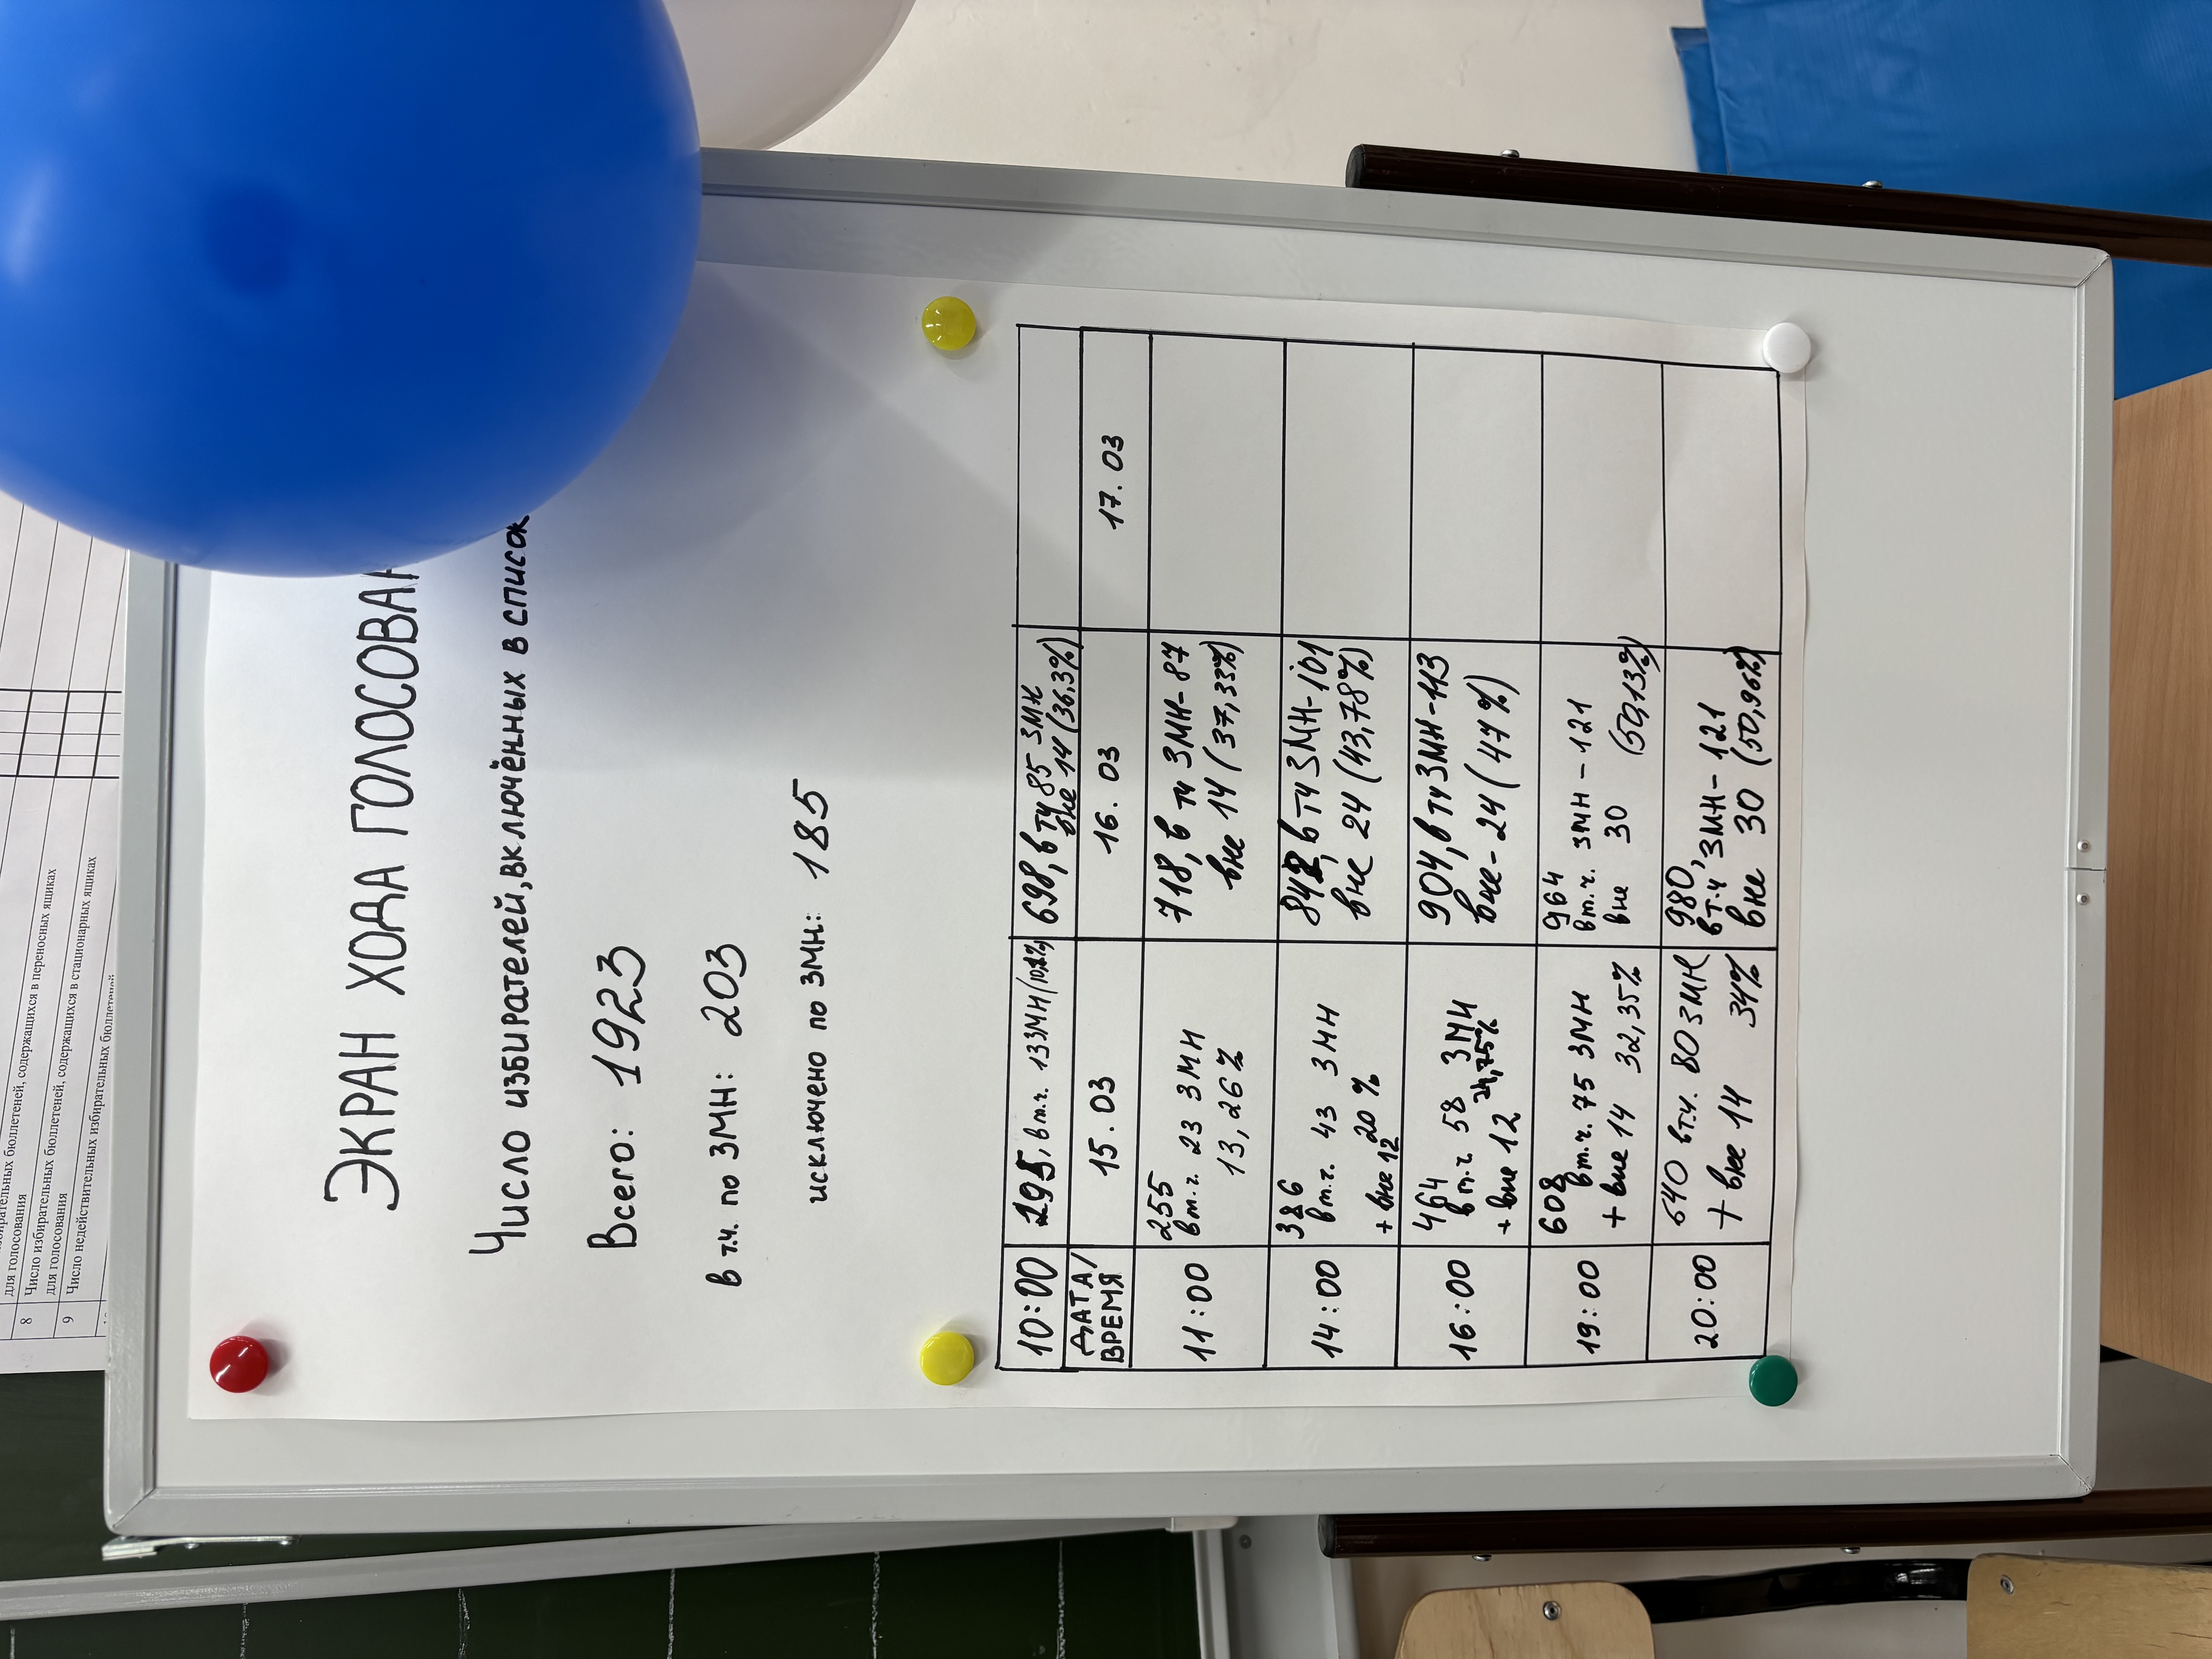 для голосования
8 Число избирательных бюллетеней, содержащихся в переносных ящиках
для голосования
9 Число избирательных бюллетеней, содержащихся в стационарных ящиках
Число недействительных избирательных бюллетеней
ЭКРАН ХОДА ГОЛОСОВАН
Число избирателей, включённых в список
Всего: 1923
в т.ч. по ЗМН: 203
исключено по ЗМН: 185
10:00 195, в т.ч. 13 ЗМН 698, в тч 85 ЗМН вне 14 (36,3%)
ДАТА/ВРЕМЯ 15.03 16.03 17.03
11:00 255 в т.ч. 23 ЗМН 13,26% 718, в тч ЗМН-87 вне 14 (37,33%)
14:00 386 в т.ч. 43 ЗМН + вне 12 20% 842, в тч ЗМН-101 вне 24 (43,78%)
16:00 464 в т.ч. 58 ЗМН + вне 12 24,75% 904, в тч ЗМН-113 вне-24 (47%)
19:00 608 в т.ч. 75 ЗМН + вне 14 32,35% 964 в т.ч. ЗМН-121 вне 30 (50,13%)
20:00 640 в т.ч. 80 ЗМН + вне 14 34% 980, в т.ч ЗМН-121 вне 30 (50,96%)